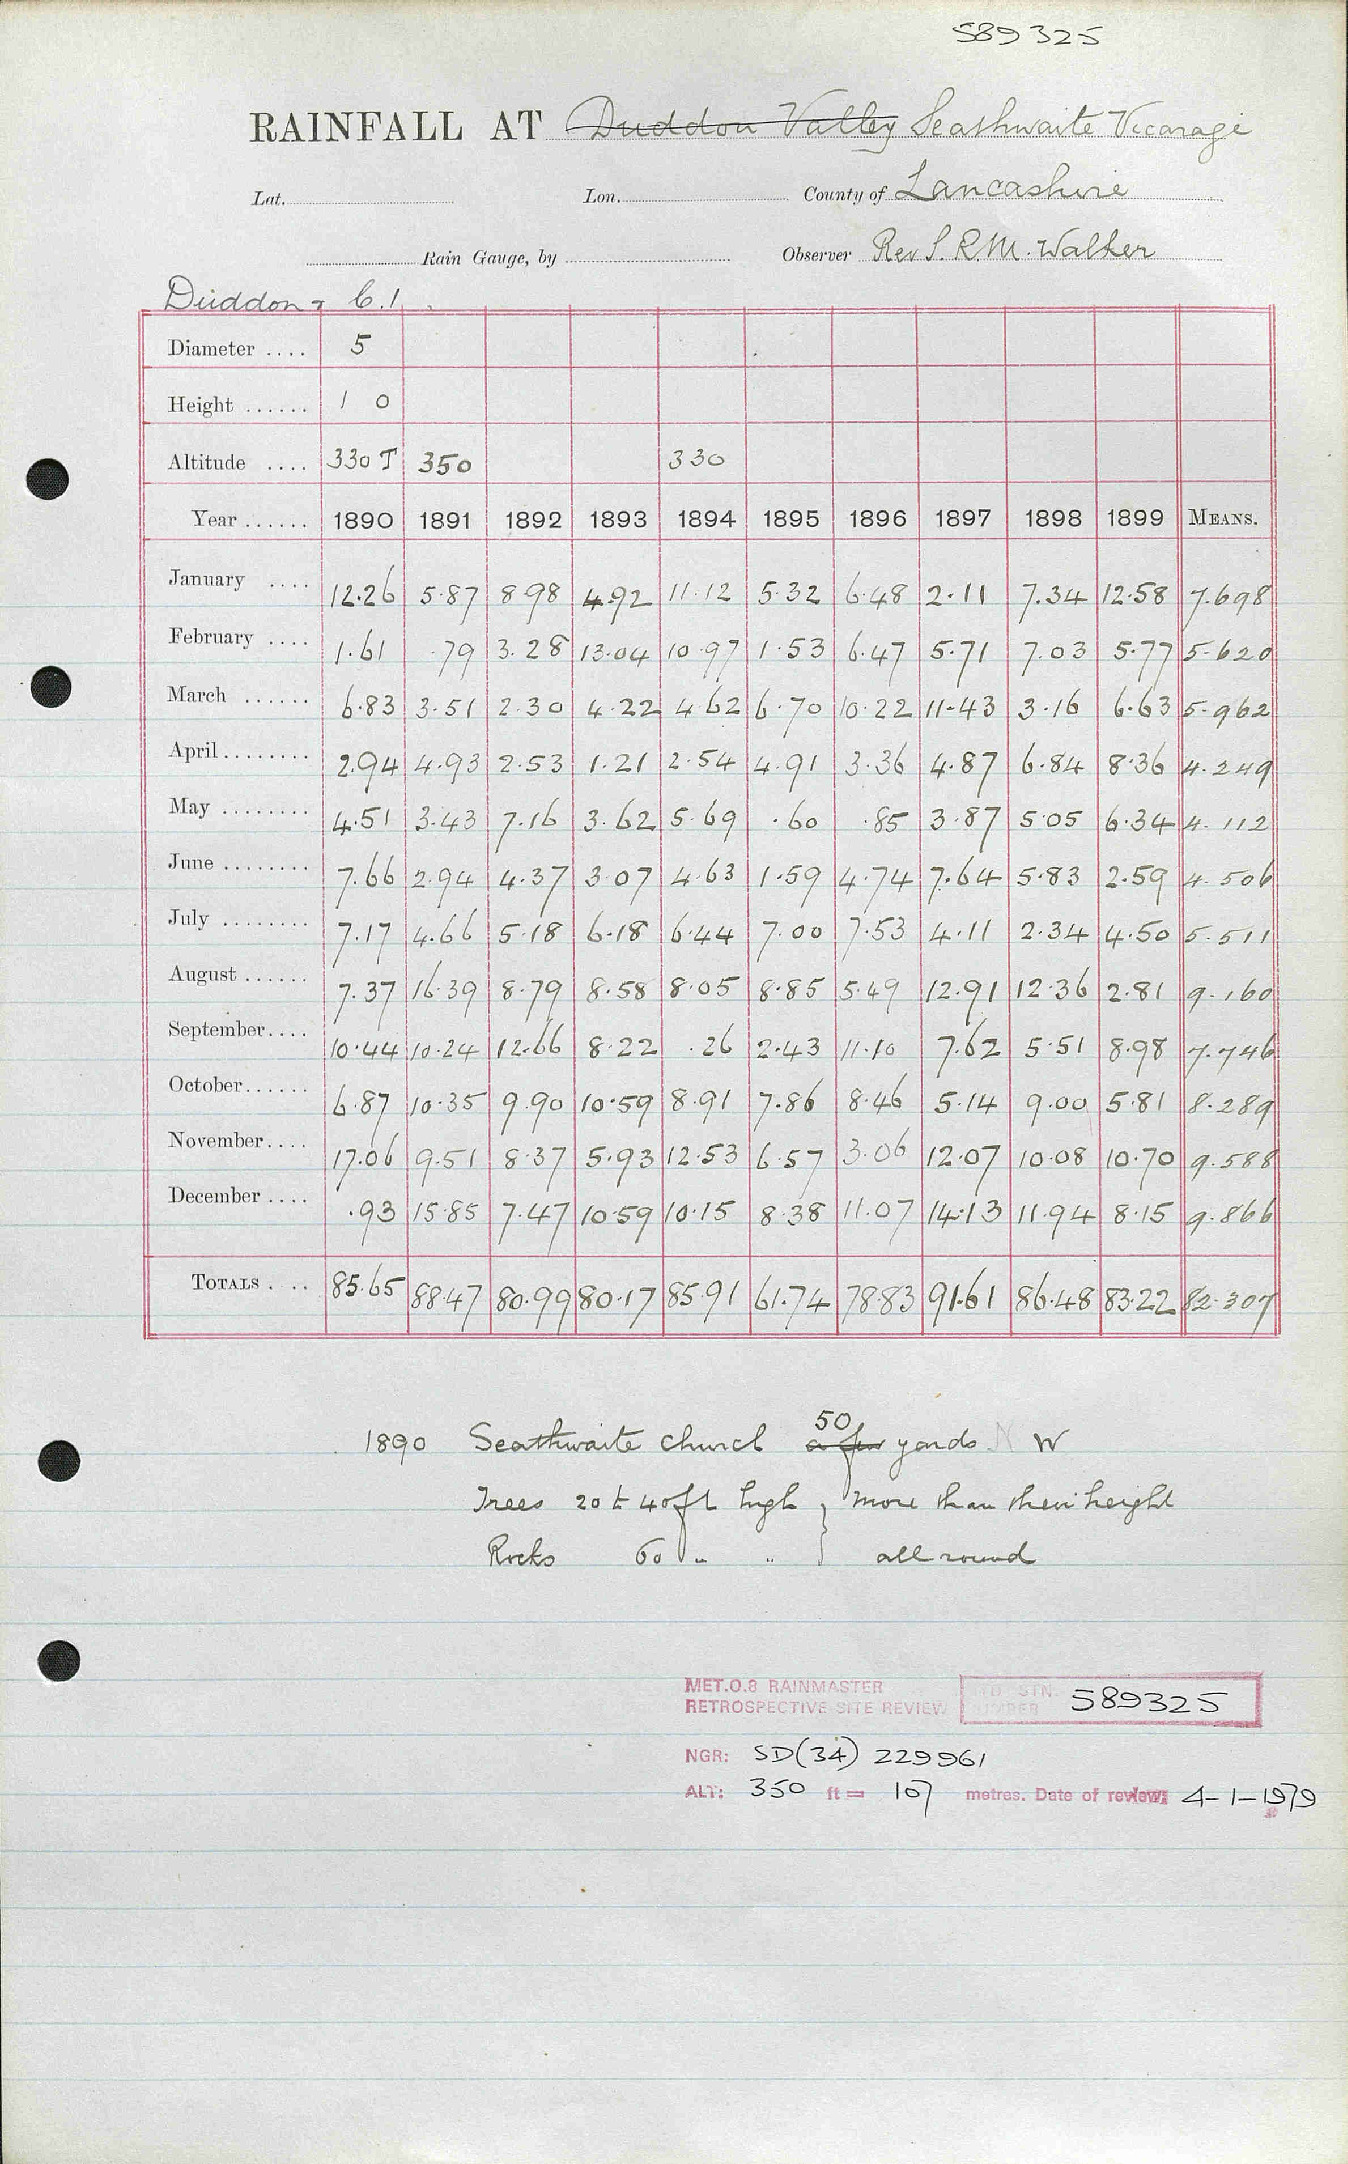 589325
RAINFALL AT Duddon Valley Seathwaite Vicarage
Lat. Lon. County of Lancashire
Rain Gauge, by Observer Rev S. R. M. Walker
Duddon C.1
Diameter .... 5
Height ...... 1 0
Altitude .... 330 T 350 330
Year ...... 1890 1891 1892 1893 1894 1895 1896 1897 1898 1899 MEANS.
January .... 12.26 5.87 8.98 4.92 11.12 5.32 6.48 2.11 7.34 12.58 7.698
February .... 1.61 .79 3.28 13.04 10.97 1.53 6.47 5.71 7.03 5.77 5.620
March ...... 6.83 3.51 2.30 4.22 4.62 6.70 10.22 11.43 3.16 6.63 5.962
April ........ 2.94 4.93 2.53 1.21 2.54 4.91 3.36 4.87 6.84 8.36 4.249
May ........ 4.51 3.43 7.16 3.62 5.69 .60 .85 3.87 5.05 6.34 4.112
June ........ 7.66 2.94 4.37 3.07 4.63 1.59 4.74 7.64 5.83 2.59 4.506
July ........ 7.17 4.66 5.18 6.18 6.44 7.00 7.53 4.11 2.34 4.50 5.511
August ...... 7.37 16.39 8.79 8.58 8.05 8.85 5.49 12.91 12.36 2.81 9.160
September .... 10.44 10.24 12.66 8.22 .26 2.43 11.10 7.62 5.51 8.98 7.746
October ...... 6.87 10.35 9.90 10.59 8.91 7.86 8.46 5.14 9.00 5.81 8.289
November .... 17.06 9.51 8.37 5.93 12.53 6.57 3.06 12.07 10.08 10.70 9.588
December .... .93 15.85 7.47 10.59 10.15 8.38 11.07 14.13 11.94 8.15 9.866
TOTALS .... 85.65 88.47 80.99 80.17 85.91 61.74 78.83 91.61 86.48 83.22 82.307
50
1890 Seathwaite church a few yards N W
Trees 20 to 40 ft high } more than their height
Rocks 60 " " } all round
MET.O.8 RAINMASTER
RETROSPECTIVE SITE REVIEW STN. NUMBER 589325
NGR: SD(34) 229961
ALT: 350 ft = 107 metres. Date of review: 4-1-1979